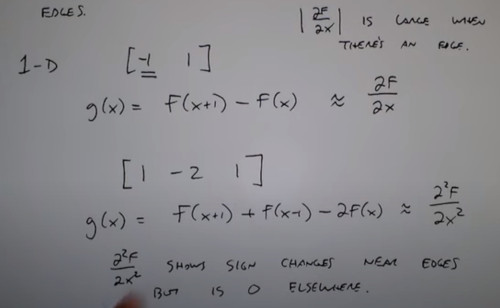 EDGES.
|∂F/∂x| IS LARGE WHEN
THERE'S AN EDGE.
1-D [-1 1]
g(x) = F(x+1) - F(x) ≈ ∂F/∂x
[1 -2 1]
g(x) = F(x+1) + F(x-1) - 2F(x) ≈ ∂²F/∂x²
∂²F/∂x² SHOWS SIGN CHANGES NEAR EDGES
BUT IS 0 ELSEWHERE.